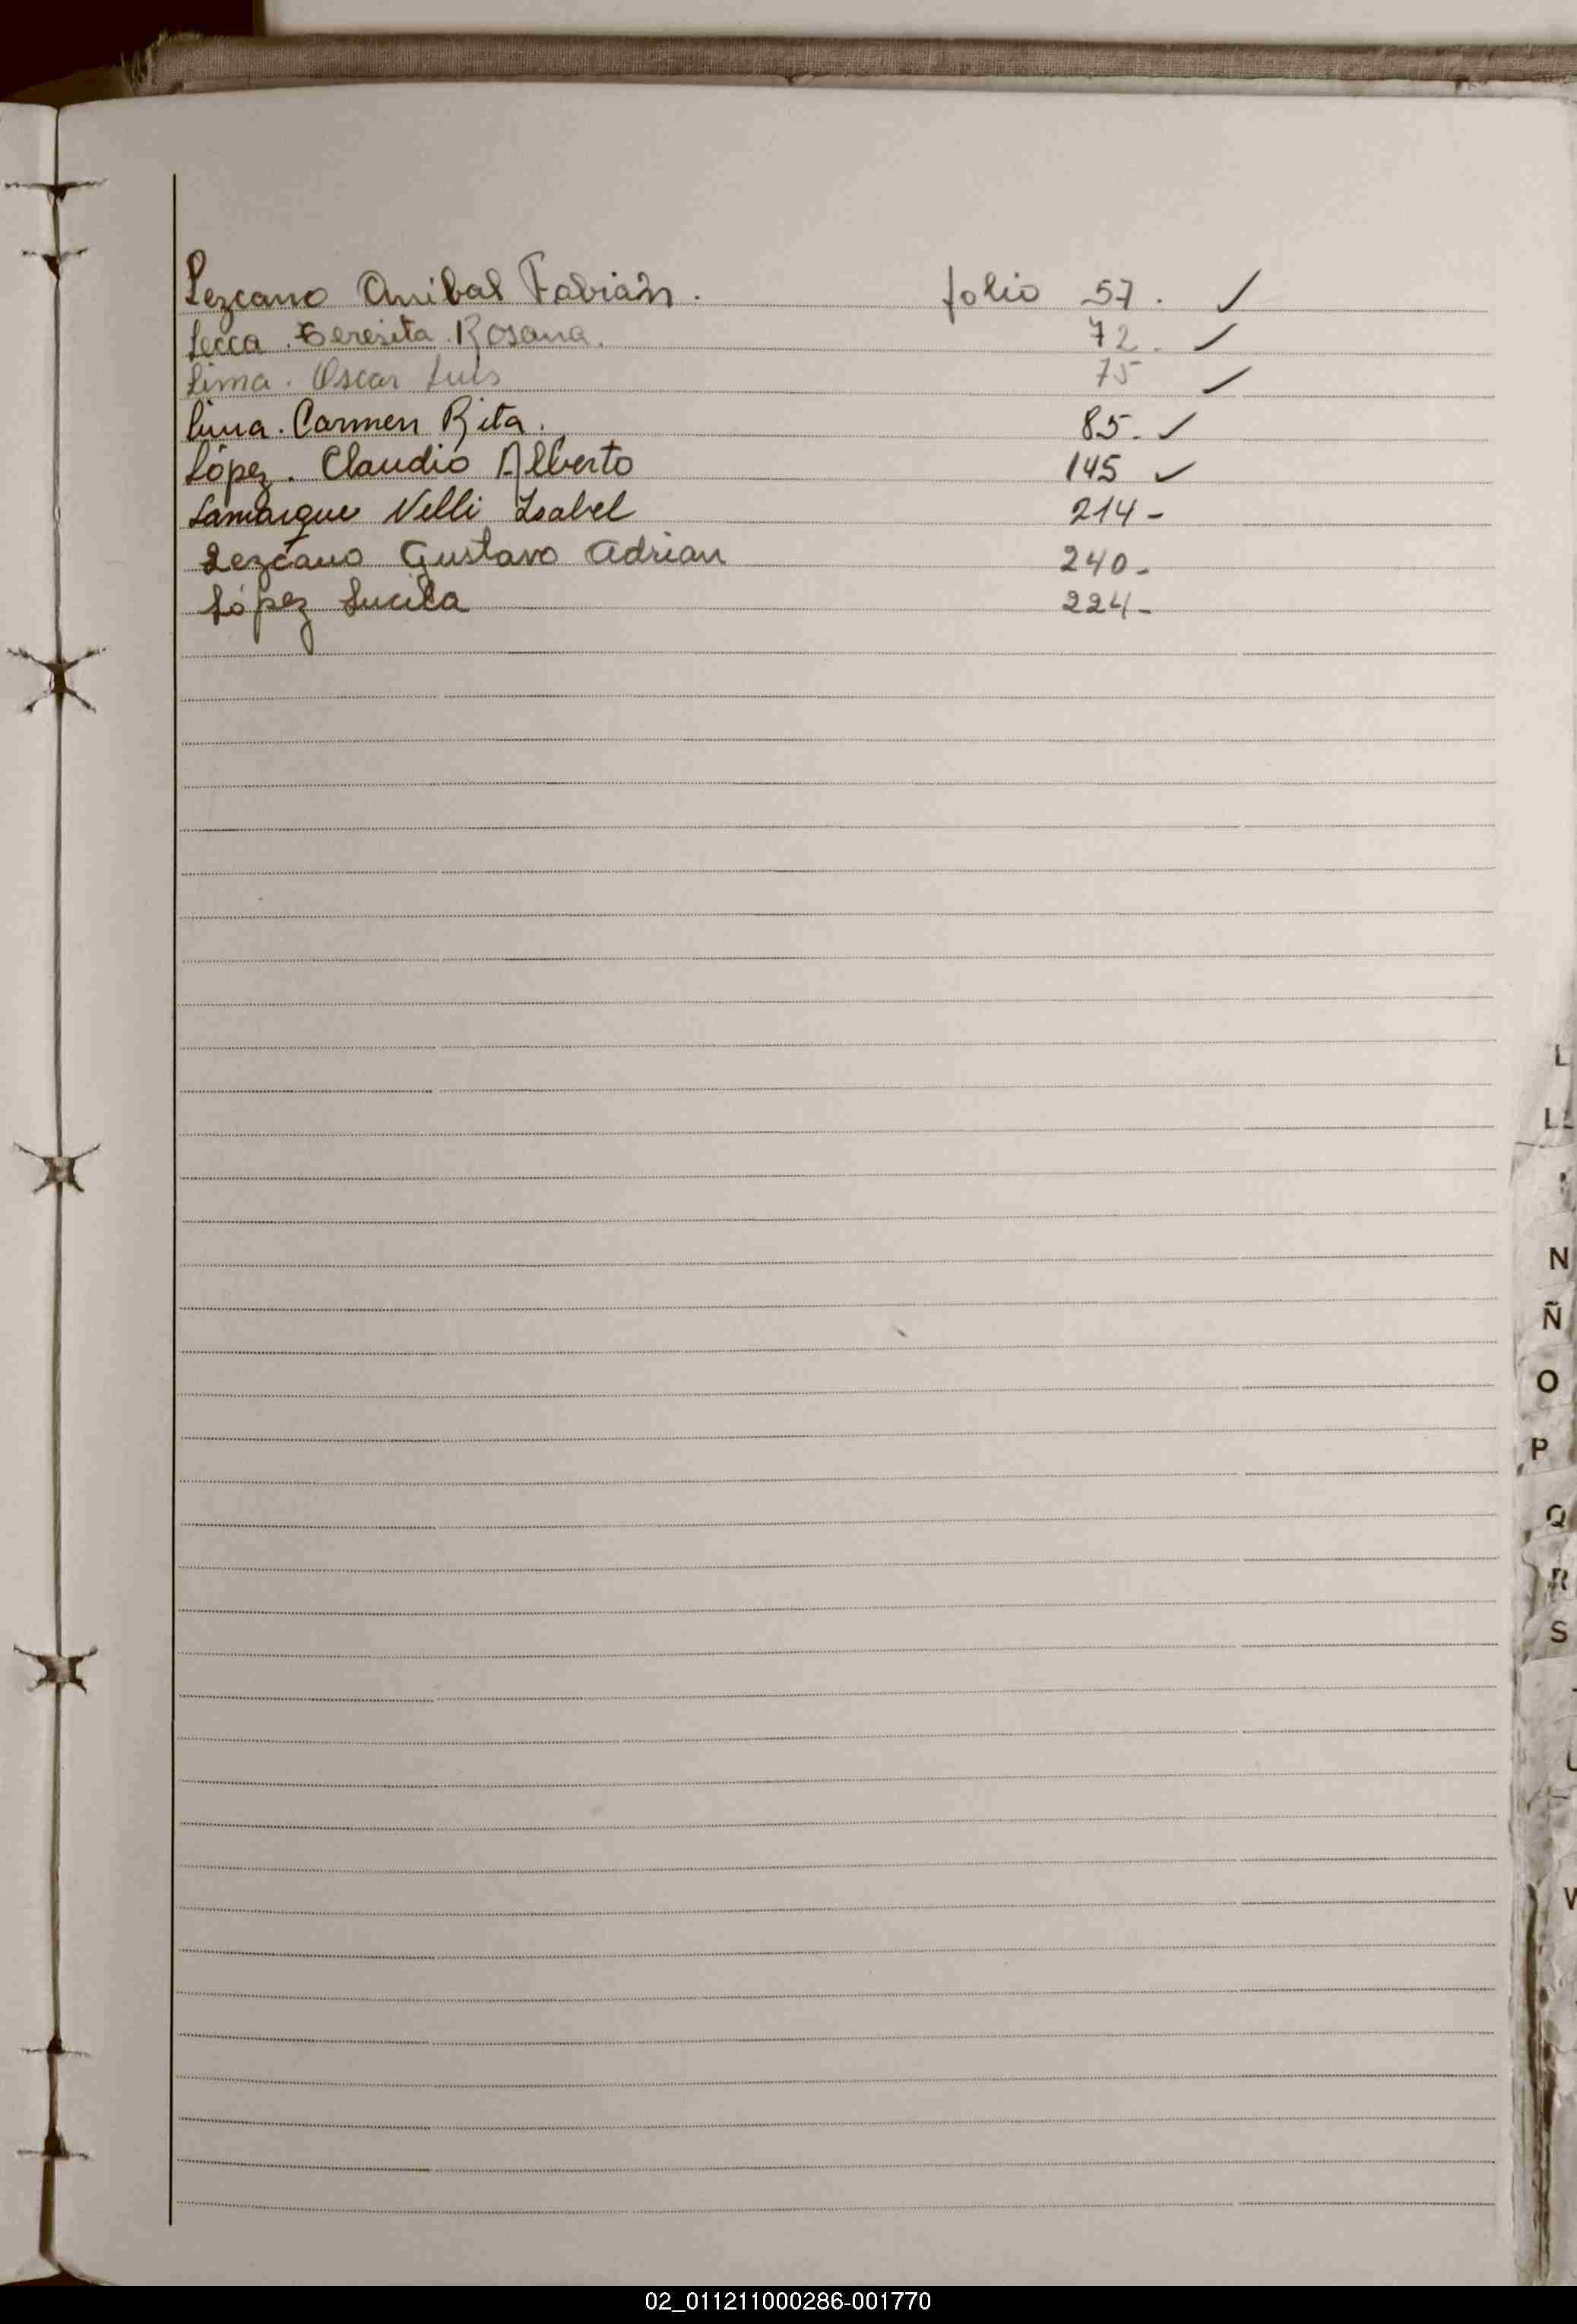 Lezcano Anibal Fabián. folio 57. ✓
Lecca. Teresita Rosana. 72. ✓
Lima. Oscar Luis 75 ✓
Lima. Carmen Rita. 85. ✓
López. Claudio Alberto 145 ✓
Lamarque Nelli Isabel 214-
Lezcano Gustavo Adrian 240-
López Lucila 224-
L
LL
N
Ñ
O
P
Q
R
S
02_011211000286-001770